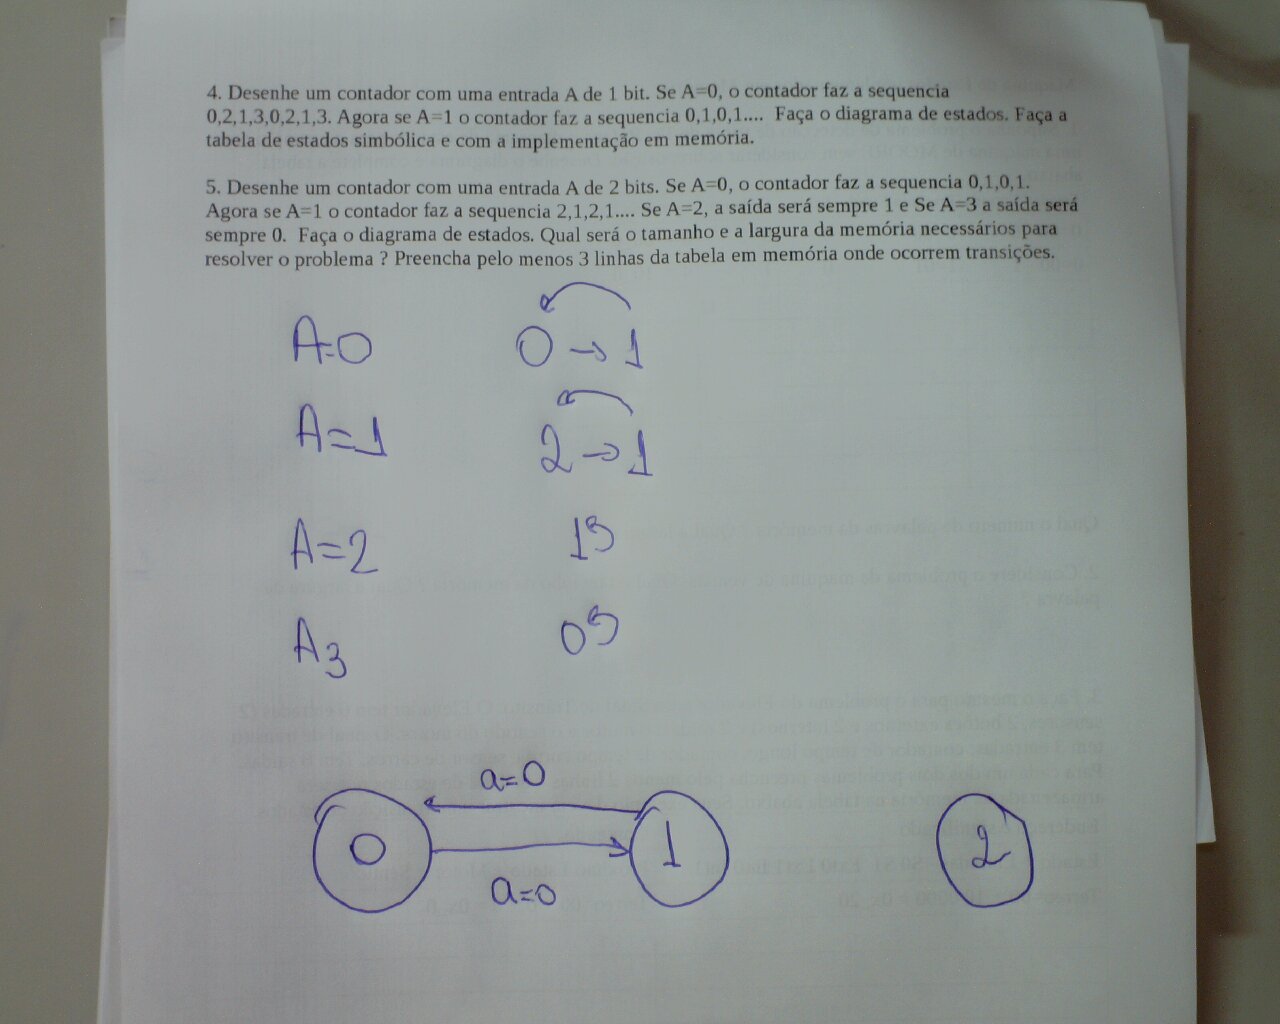 4. Desenhe um contador com uma entrada A de 1 bit. Se A=0, o contador faz a sequencia
0,2,1,3,0,2,1,3. Agora se A=1 o contador faz a sequencia 0,1,0,1.... Faça o diagrama de estados. Faça a
tabela de estados simbólica e com a implementação em memória.
5. Desenhe um contador com uma entrada A de 2 bits. Se A=0, o contador faz a sequencia 0,1,0,1.
Agora se A=1 o contador faz a sequencia 2,1,2,1.... Se A=2, a saída será sempre 1 e Se A=3 a saída será
sempre 0. Faça o diagrama de estados. Qual será o tamanho e a largura da memória necessários para
resolver o problema ? Preencha pelo menos 3 linhas da tabela em memória onde ocorrem transições.
A=0 0 → 1
A=1 2 → 1
A=2 1
A3 0
a=0
0 1 2
a=0